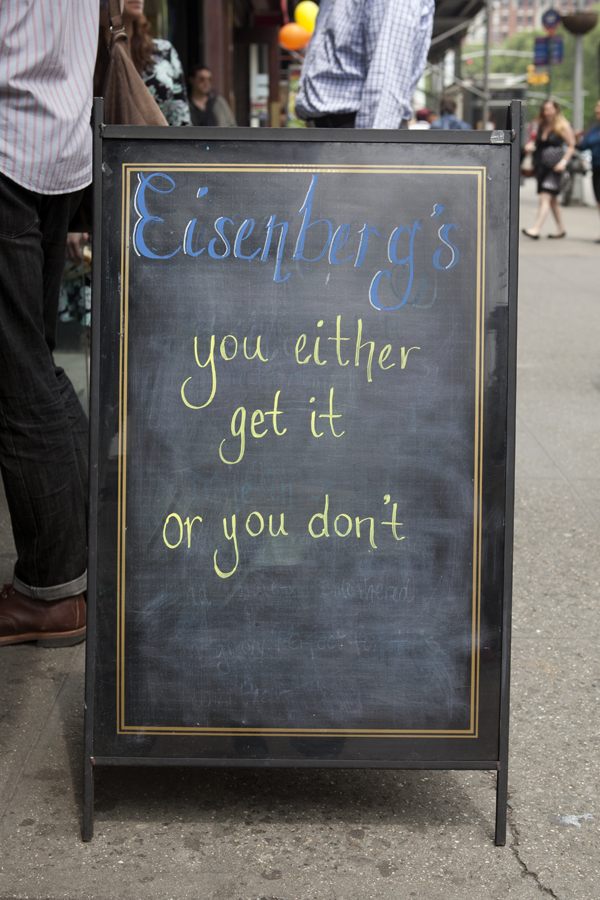 Eisenberg's
you either
get it
or you don't